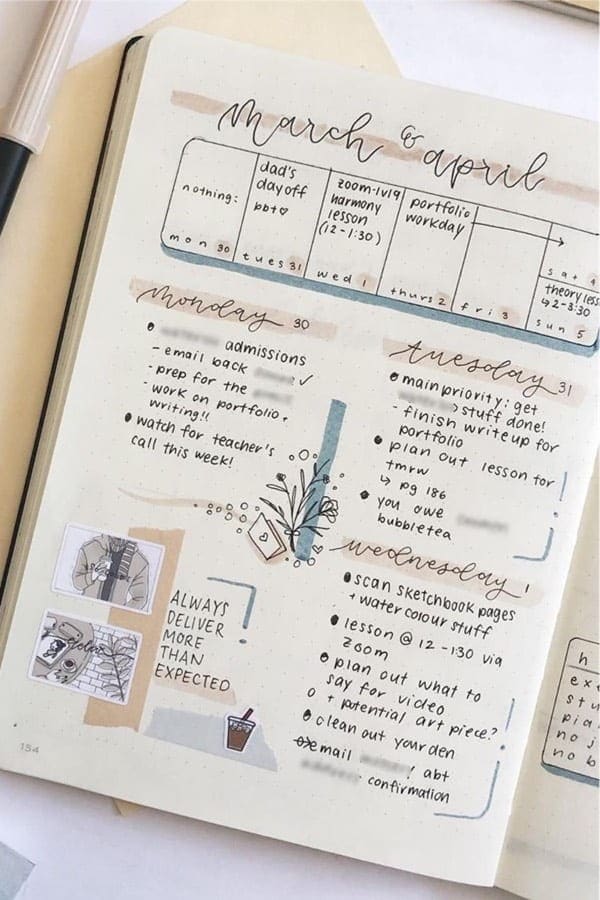 march & april
nothing:
mon 30
dad's
day off
bbt♡
tues 31
zoom-lvl9
harmony
lesson
(12-1:30)
wed 1
portfolio
workday
thurs 2
fri 3
sat 4
theory less
↳2-3:30
sun 5
monday 30
admissions
- email back ✓
- prep for the
- work on portfolio,
writing!!
• watch for teacher's
call this week!
tuesday 31
• main priority: get
> stuff done!
- finish writeup for
portfolio
• plan out lesson for
tmrw
↳ pg 186
• you owe
bubbletea
wednesday 1
• scan sketchbook pages
+ watercolour stuff
• lesson @ 12-1:30 via
zoom
• plan out what to
say for video
o + potential art piece?
• clean out your den
email , abt
confirmation
ALWAYS
DELIVER
MORE
THAN
EXPECTED
134
h
ex
stu
pia
no j
no b